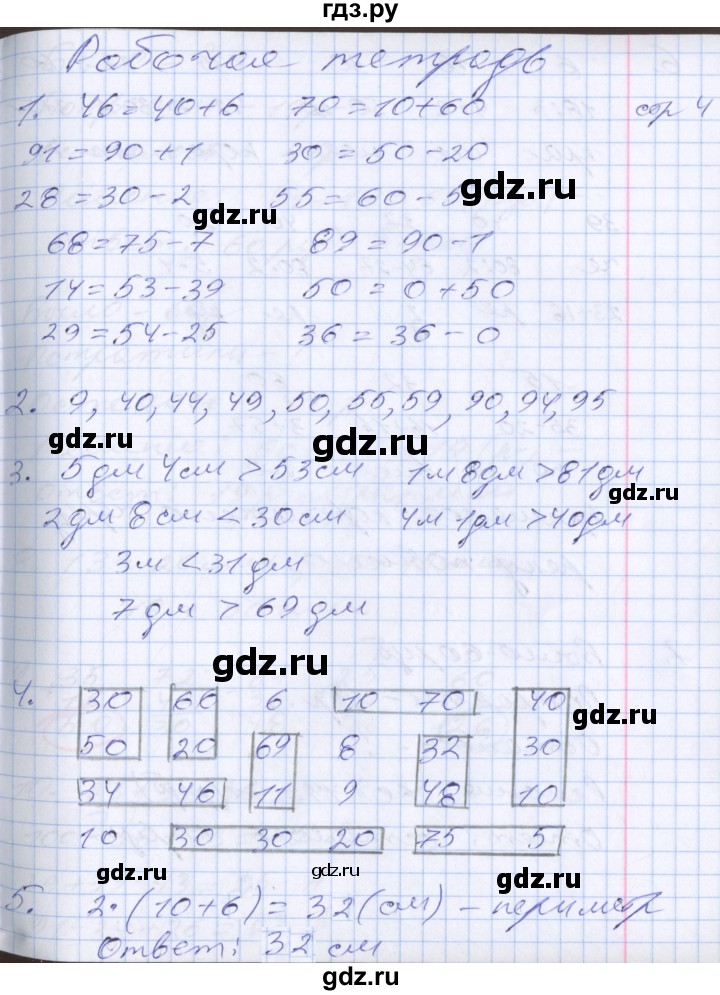 гдз.ру
Рабочая тетрадь
1. 46 = 40 + 6 70 = 10 + 60 стр 4
91 = 90 + 1 30 = 50 - 20
28 = 30 - 2 55 = 60 - 5
gdz.ru gdz.ru
68 = 75 - 7 89 = 90 - 1
14 = 53 - 39 50 = 0 + 50
29 = 54 - 25 36 = 36 - 0
2. 9, 40, 44, 49, 50, 55, 59, 90, 94, 95
gdz.ru gdz.ru
3. 5 дм 4 см > 53 см 1 м 8 дм > 81 дм
gdz.ru
2 дм 8 см < 30 см 4 м 1 дм > 40 дм
3 м < 31 дм
7 дм > 69 дм
gdz.ru
4. 30 66 6 10 70 40
gdz.ru
50 20 69 8 32 30
34 46 11 9 48 10
10 30 30 20 75 5
gdz.ru gdz.ru gdz.ru
5. 2 · (10 + 6) = 32 (см) - периметр
Ответ: 32 см
gdz.ru